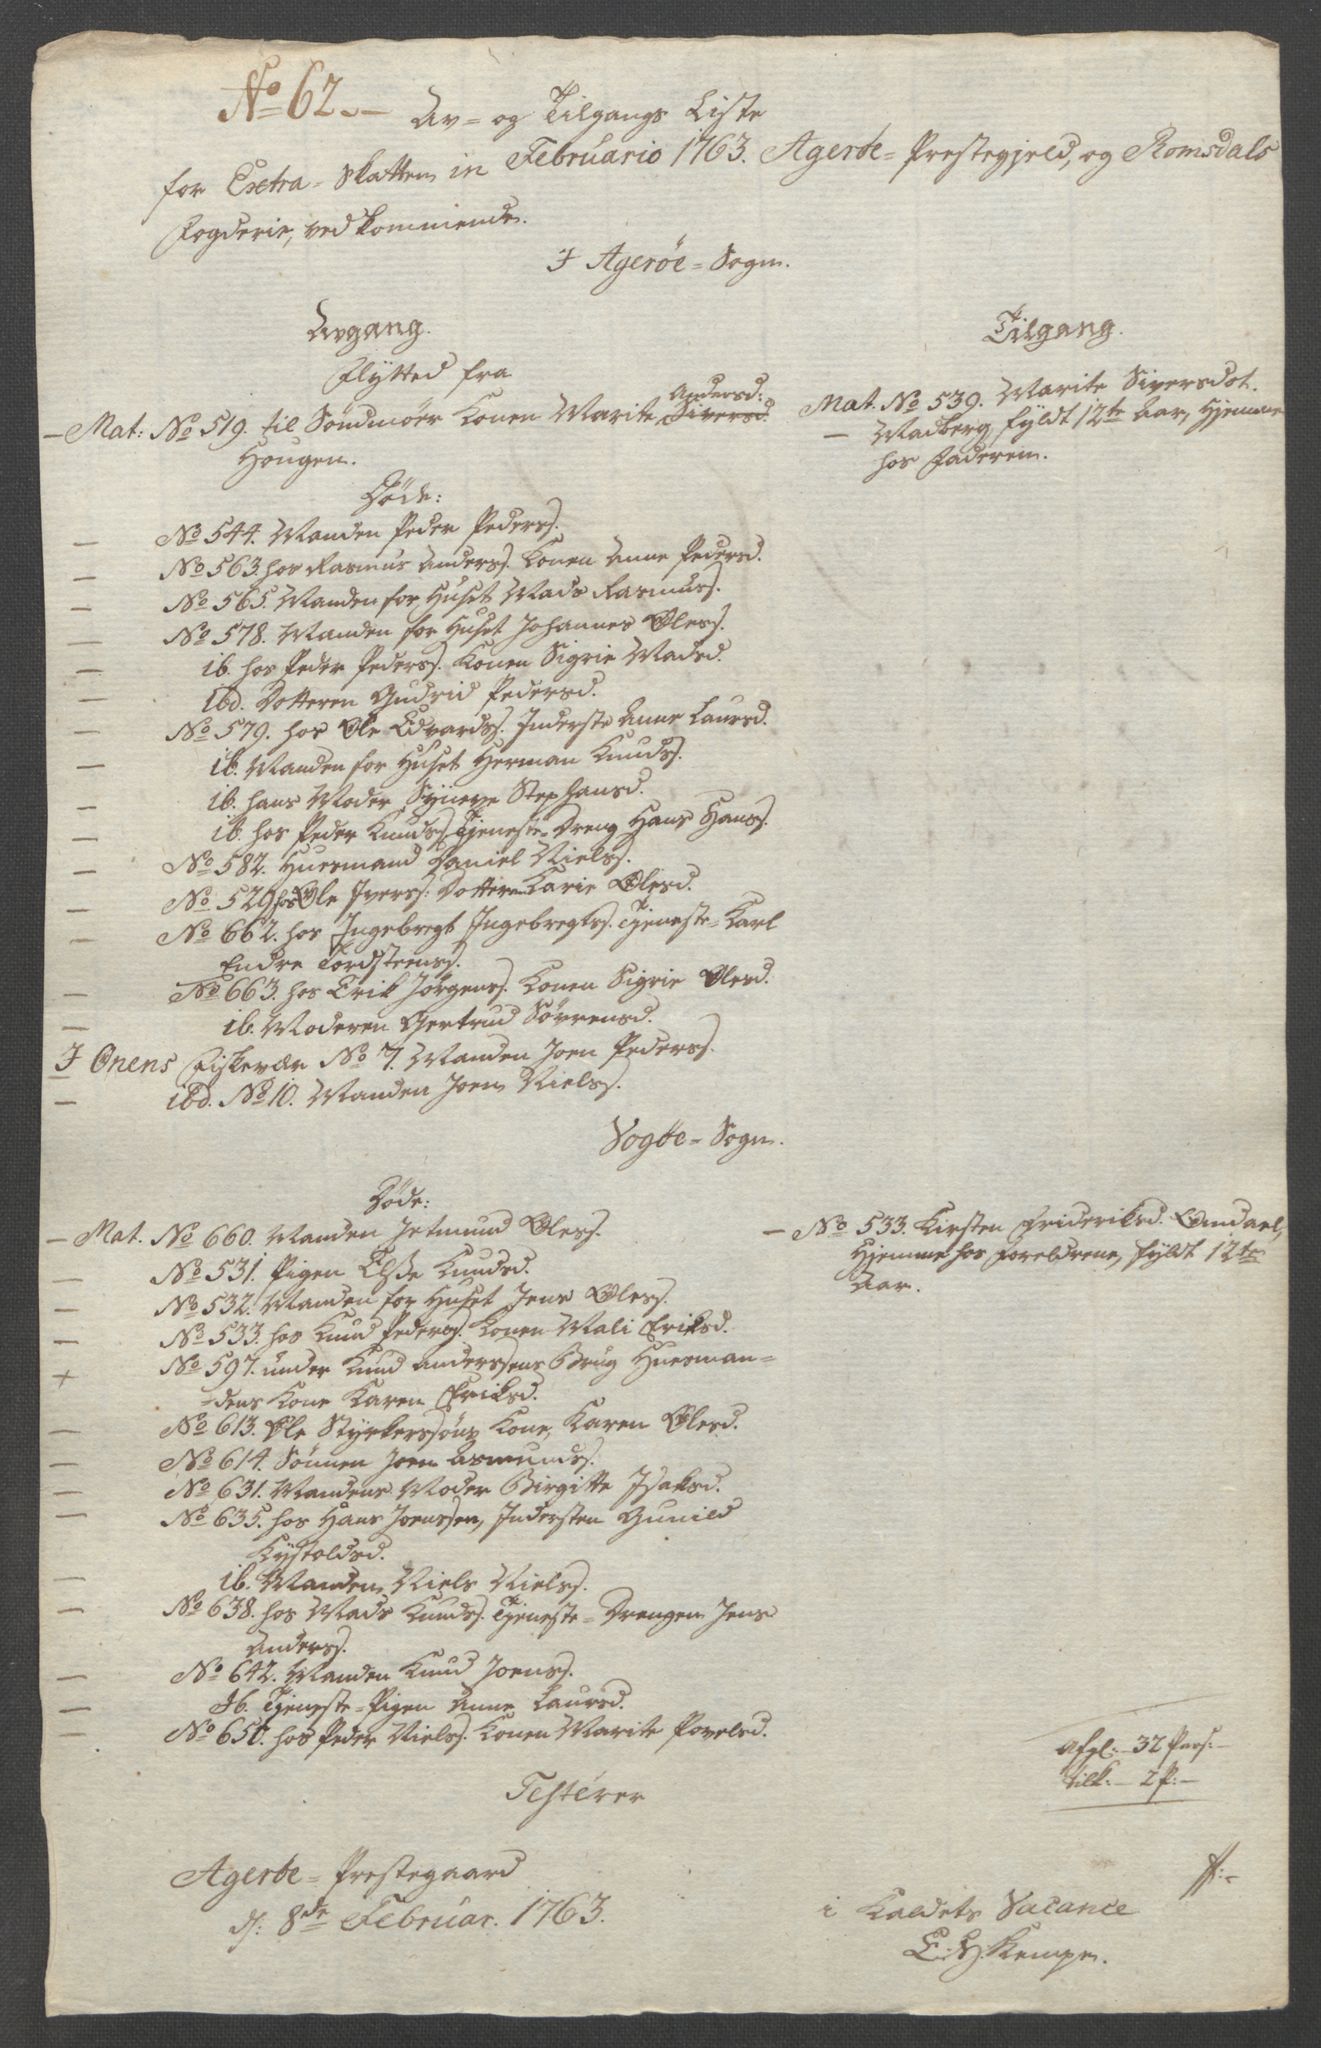 No 62.
Av- og Tilgangs Liste
for Extra-Skatten in Februario 1763. Agerøe-Prestegjeld, og Romsdals
Fogderie, vedkommende.
I Agerøe-Sogn.
Avgang.
Flytted fra
Mat: No 519. til Søndmøer Konen Marite Siversd. Andersd:
Hougen.
Døde:
No 544. Manden Peder Peders.
No 563. hos Rasmus Anders. Konen Anne Pedersd.
No 565. Manden for Huset Mads Rasmus.
No 578. Manden for Huset Johannes Oles.
ib. hos Peder Peders. Konen Sigrie Madsd.
ibd. Dotteren Gudrid Pedersd.
No 579. hos Ole Edvards. Inderste Anne Laursd.
ib. Manden for Huset Herman Knuds.
ib. hans Moder Syneve Stephansd.
ib. hos Peder Knuds. Tjeneste-Dreng Hans Hans.
No 582. Huesmand Daniel Niels.
No 529 hos Ole Ivers: Dotteren Karie Olesd.
No 662. hos Ingebregt Ingebregts. Tjeneste-Karl
Endre Tordsteens.
No 663. hos Erik Jørgens. Konen Sigrie Olesd.
ib. Moderen Gertrud Sørensd.
I Onens Fiskevær No 7. Manden Joen Peders.
ibd. No 10. Manden Joen Niels.
Tilgang.
Mat. No 539. Marite Siversdot.
Madberg, fyldt 12te Aar, Hjemme
hos Faderen.
Vogøe-Sogn.
Døde:
Mat. No 660. Manden Jetmund Oles.
No 531. Pigen Elsze Knudsd.
No 532. Manden for Huset Jens Oles.
No 533. hos Knud Peders. Konen Mali Eriksd.
No 597. under Knud Anderssens Brug Huesman-
dens Kone Karen Eriksd.
No 613. Ole Styrkerssøns Kone, Karen Olesd.
No 614. Sønnen Joen Asmunds.
No 631. Mandens Moder Birgitte Isaksd.
No 635. hos Hans Joenssen, Indersten Gunild
Kystoldsd.
ib. Manden Niels Niels.
No 638. hos Mads Knuds. Tjeneste-Drengen Jens
Anders.
No 642. Manden Knud Joens.
Ib. Tjeneste-Pigen Anne Laursd.
No 650. hos Peder Niels. Konen Marite Povelsd.
No 533. Kirsten Frideriksd. Omdael,
Hjemme hos Foreldrene, fyldt 12te
Aar.
Afgl: 32 Pers:
tilk: 2 P:
Testerer
Agerøe-Prestegaard
d: 8de Februar. 1763.
i Kaldets Vacance
E: H. Kempe.